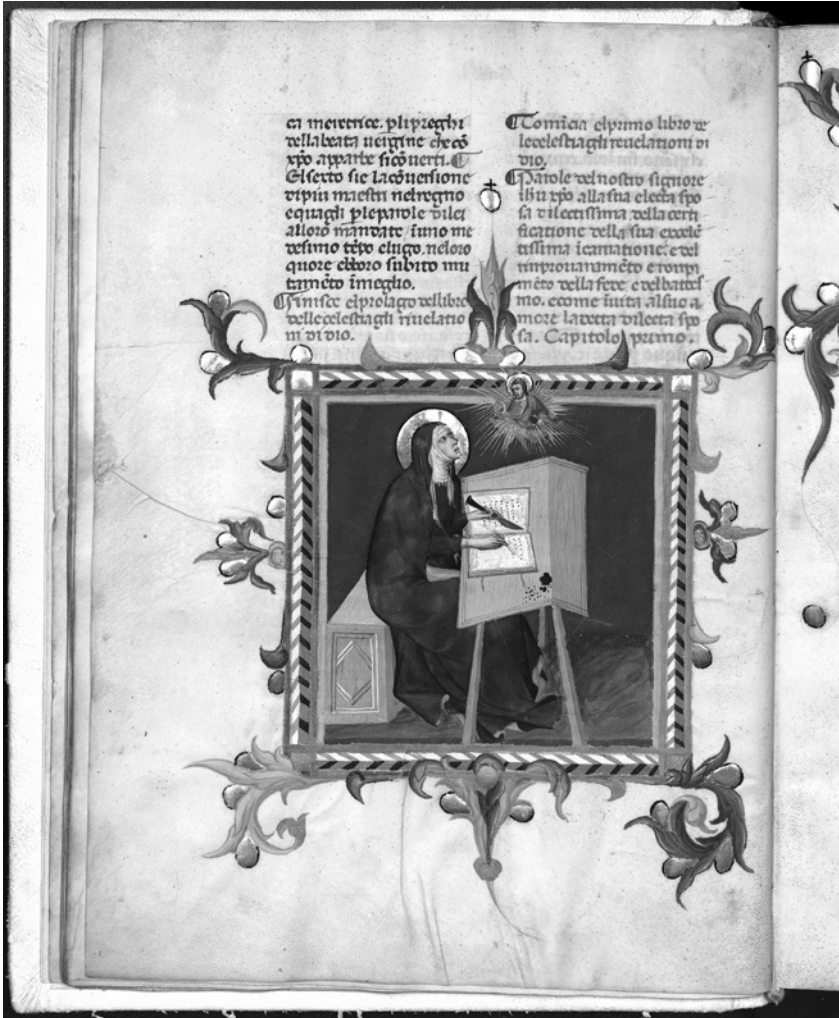 ca meretrice. p̲ li preghi
della beata uergine che cō
xp̄o apparbe si cōuerti. ¶
El sexto sie la cōuersione
di piu maestri nel regno
e quagli p̲ le parole di lei
alloro mandate ī uno me
desimo tēpo elugo. ne loro
quore ebboro subito mu
tamēto ī meglio.
¶ Finisce el prolago del libro
delle celestiagli riuelatio
ni di dio.
¶ Comīcia el primo libro de
le celestiagli reuelationi di
dio.
¶ Parole del nostro signore
ihū xp̄o alla sua electa spo
sa dilectissima. della certi
ficatione della sua excelē
tissima īcarnatione: e del
improuaramēto e ronpi
mēto della fede e del battes
mo. e come īuita al suo a
more la detta dilecta spo
sa. Capitolo primo.